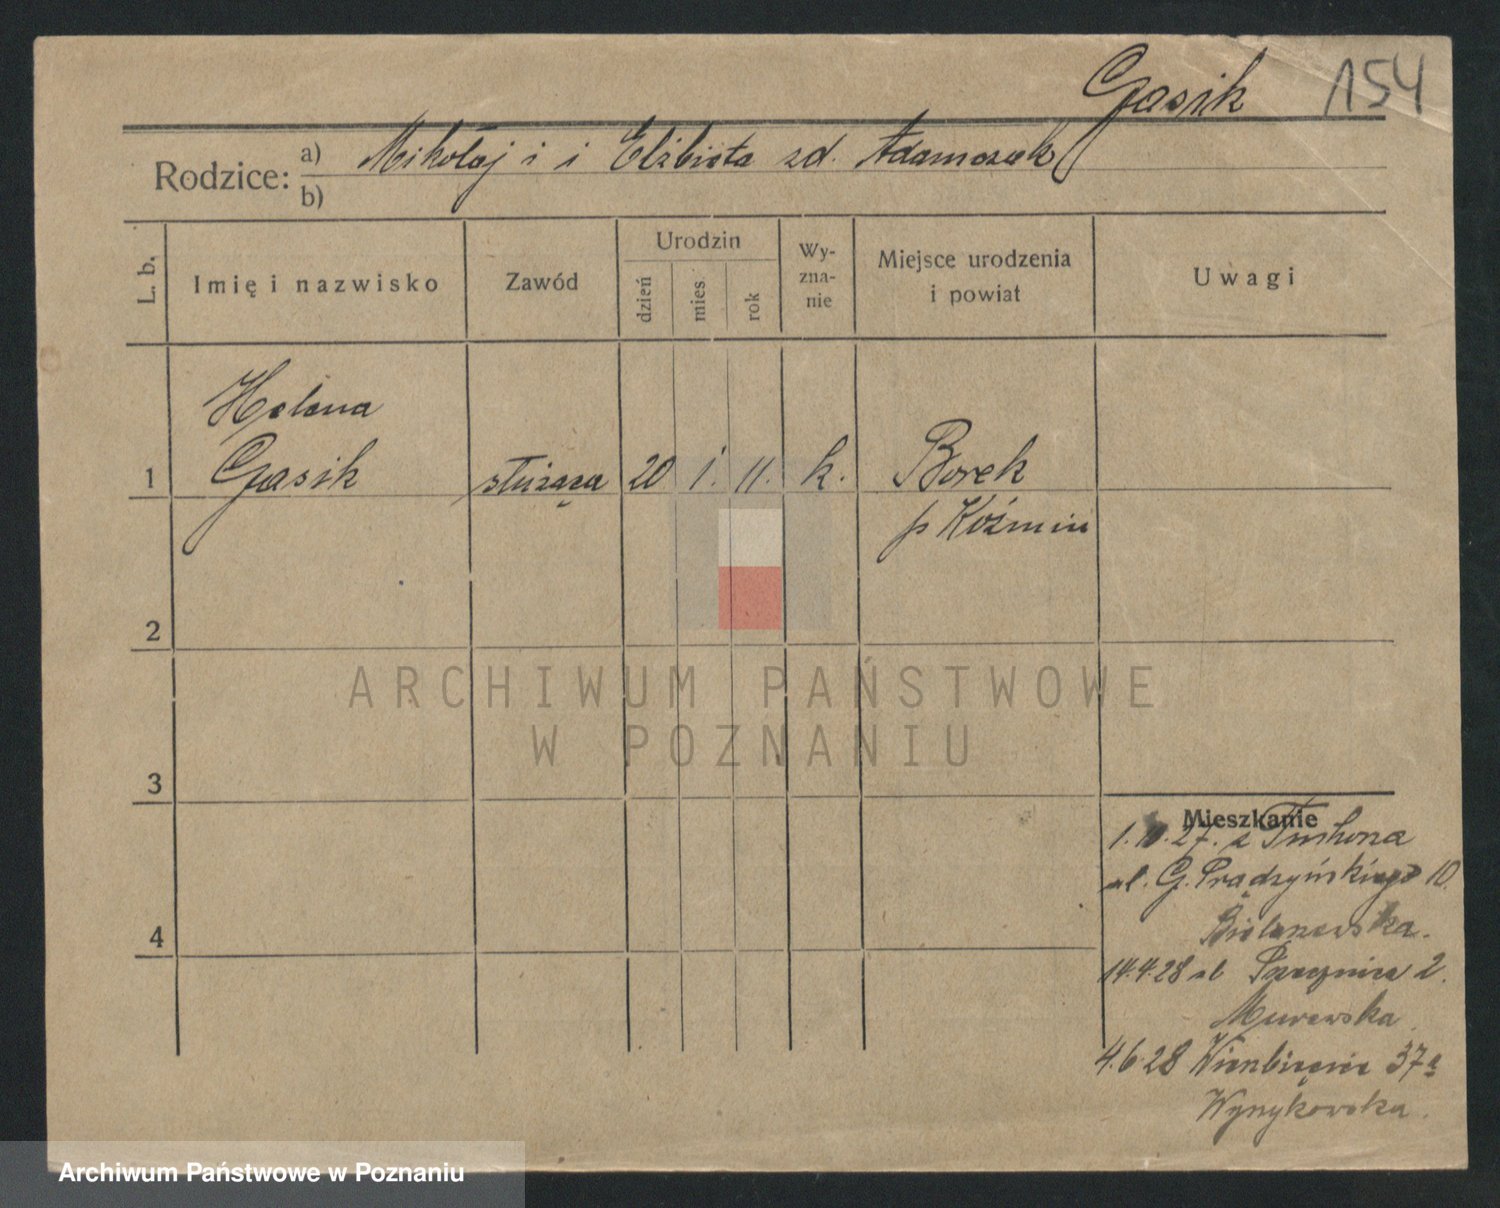 Gasik 154
Rodzice: a) Mikołaj i i Elżbieta zd. Adamczak
b)
L. b.
Imię i nazwisko
Zawód
Urodzin
dzień
mies
rok
Wy-
zna-
nie
Miejsce urodzenia
i powiat
Uwagi
Helena
1 Gasik służąca 20 1. 11. k. Borek
p Koźmin
2
ARCHIWUM PAŃSTWOWE
W POZNANIU
3
Mieszkanie
1.10.27. z
ul. G. Prądzyńskiego 10.
4
14.4.28 ul 2.
Murawska
4.6.28 Wierzbięcice 37a
Archiwum Państwowe w Poznaniu